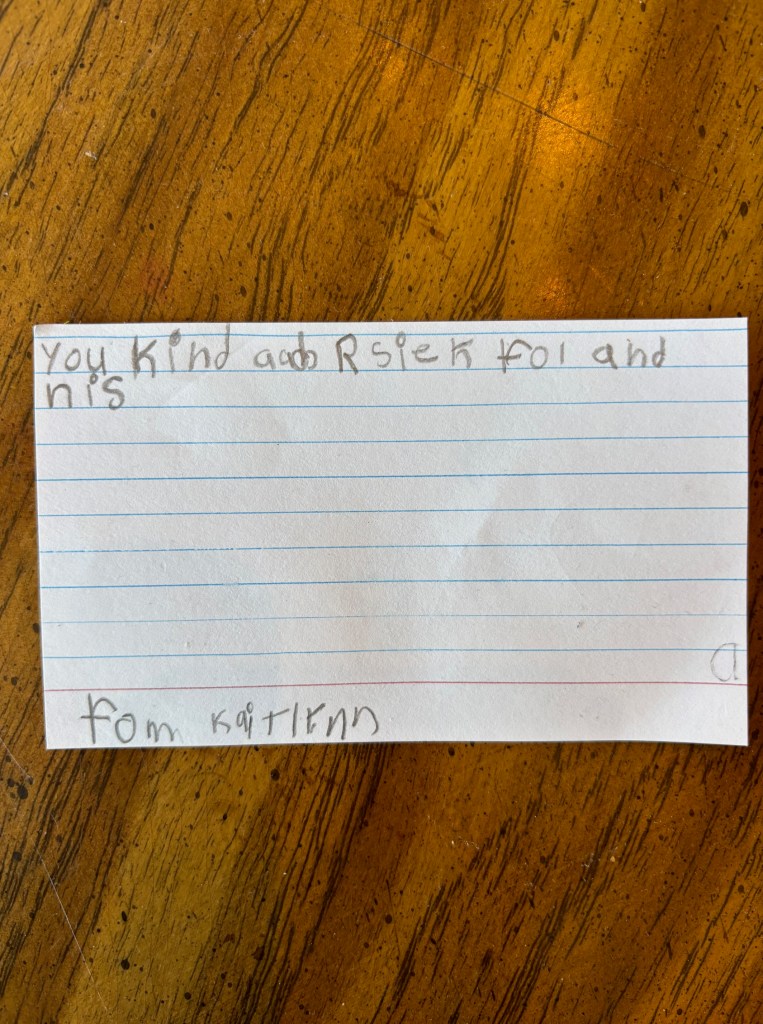 You kind aab R siek fol and
nis
a
fom kaitlynn